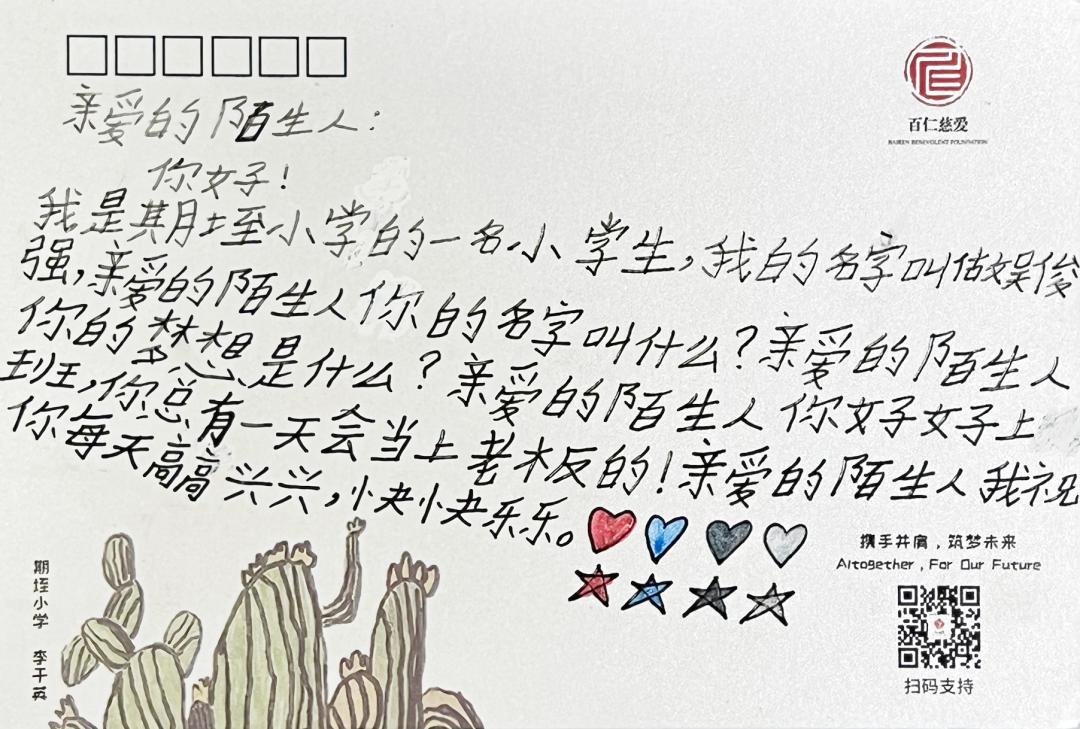 百仁慈爱
BAIREN BENEVOLENT FOUNDATION
亲爱的陌生人:
你好!
我是期垤小学的一名小学生,我的名字叫做娱俊
强,亲爱的陌生人你的名字叫什么?亲爱的陌生人
你的梦想是什么?亲爱的陌生人你好好上
班,你总有一天会当上老板的!亲爱的陌生人我祝
你每天高高兴兴,快快乐乐。
携手并肩,筑梦未来
Altogether , For Our Future
扫码支持
期垤小学 李干英